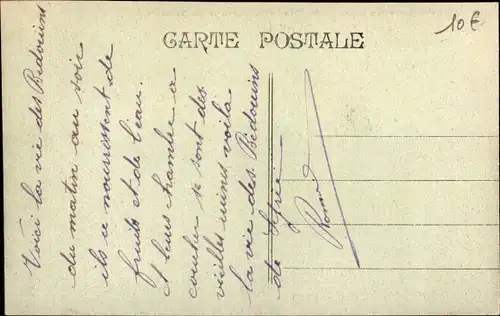 CARTE POSTALE
10€
Voici la vie des Bédouins
du matin au soir
ils se nourrissent de
fruits et de l'eau.
& leurs chambre a
coucher se sont des
vieilles ruines voila
la vie des Bédouins
de